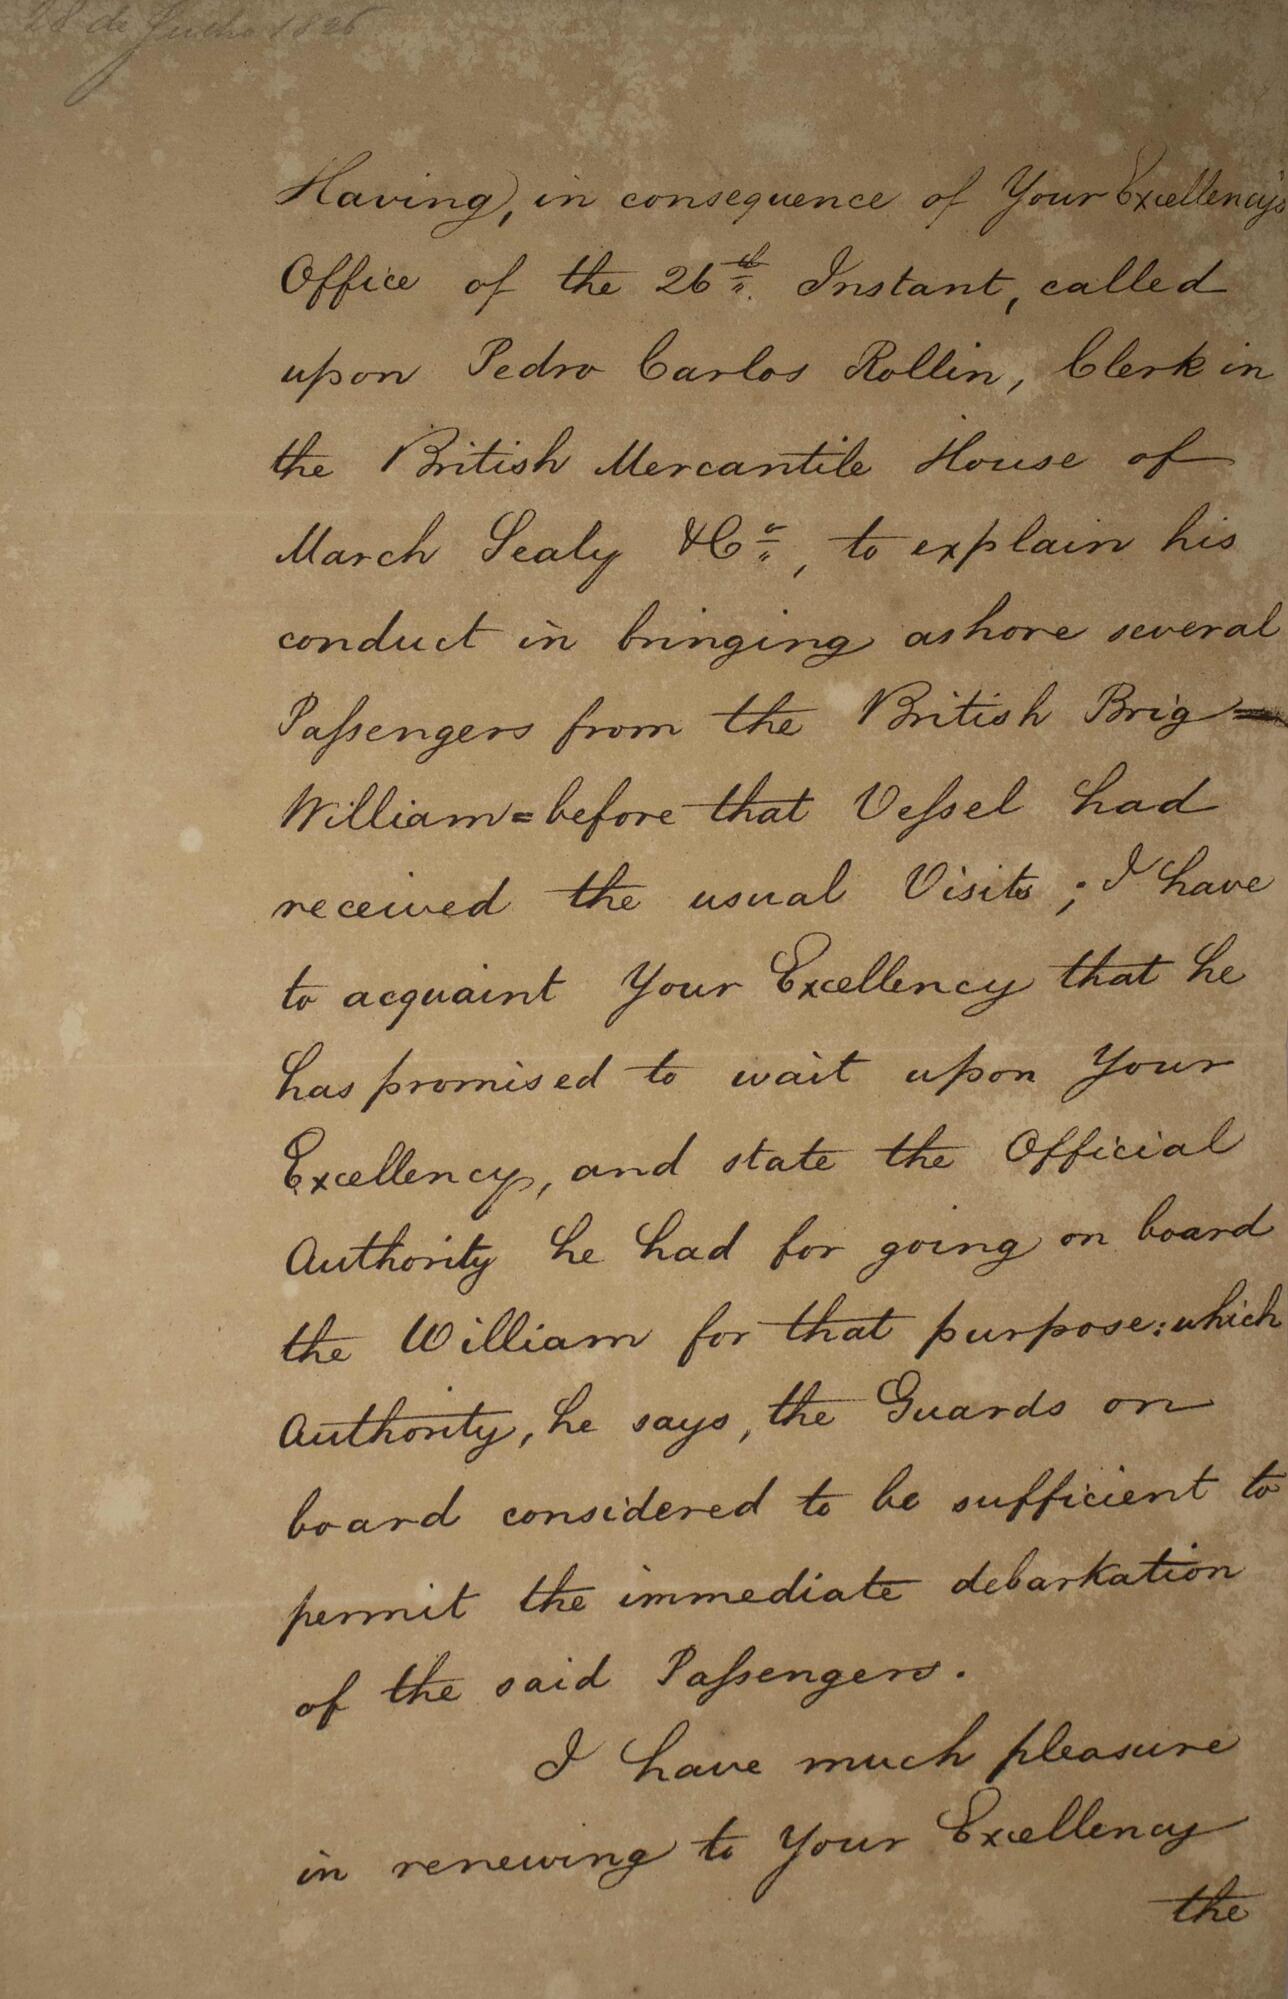 28 de Julho 1826
Having, in consequence of Your Excellency's
Office of the 26th. Instant, called
upon Pedro Carlos Rollin, Clerk in
the British Mercantile House of
March Sealy & Co, to explain his
conduct in bringing ashore several
Paſsengers from the British Brig =
William = before that Veſsel had
received the usual Visits; I have
to acquaint Your Excellency that he
has promised to wait upon Your
Excellency, and state the Official
Authority he had for going on board
the William for that purpose: which
Authority, he says, the Guards on
board considered to be sufficient to
permit the immediate debarkation
of the said Paſsengers.
I have much pleasure
in renewing to Your Excellency
the